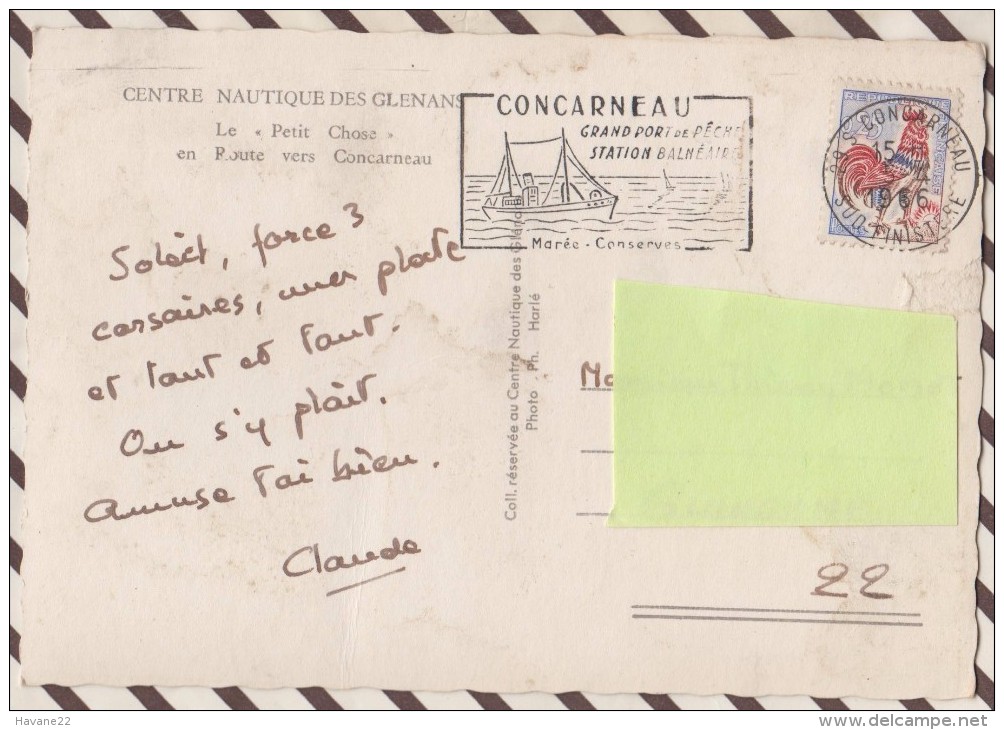 CENTRE NAUTIQUE DES GLENANS
Le « Petit Chose »
en Route vers Concarneau
CONCARNEAU
GRAND PORT DE PÊCHE
STATION BALNÉAIRE
Marée - Conserves
29 S CONCARNEAU
15
1966
SUD-FINISTÈRE
Soleil, force 3
corsaires, mer plate
et tout et tout.
On s'y plait.
Amuse toi bien.
Claude
Coll. réservée au Centre Nautique des Glénans
Photo Ph. Harlé
22
Havane22
delcampe.net